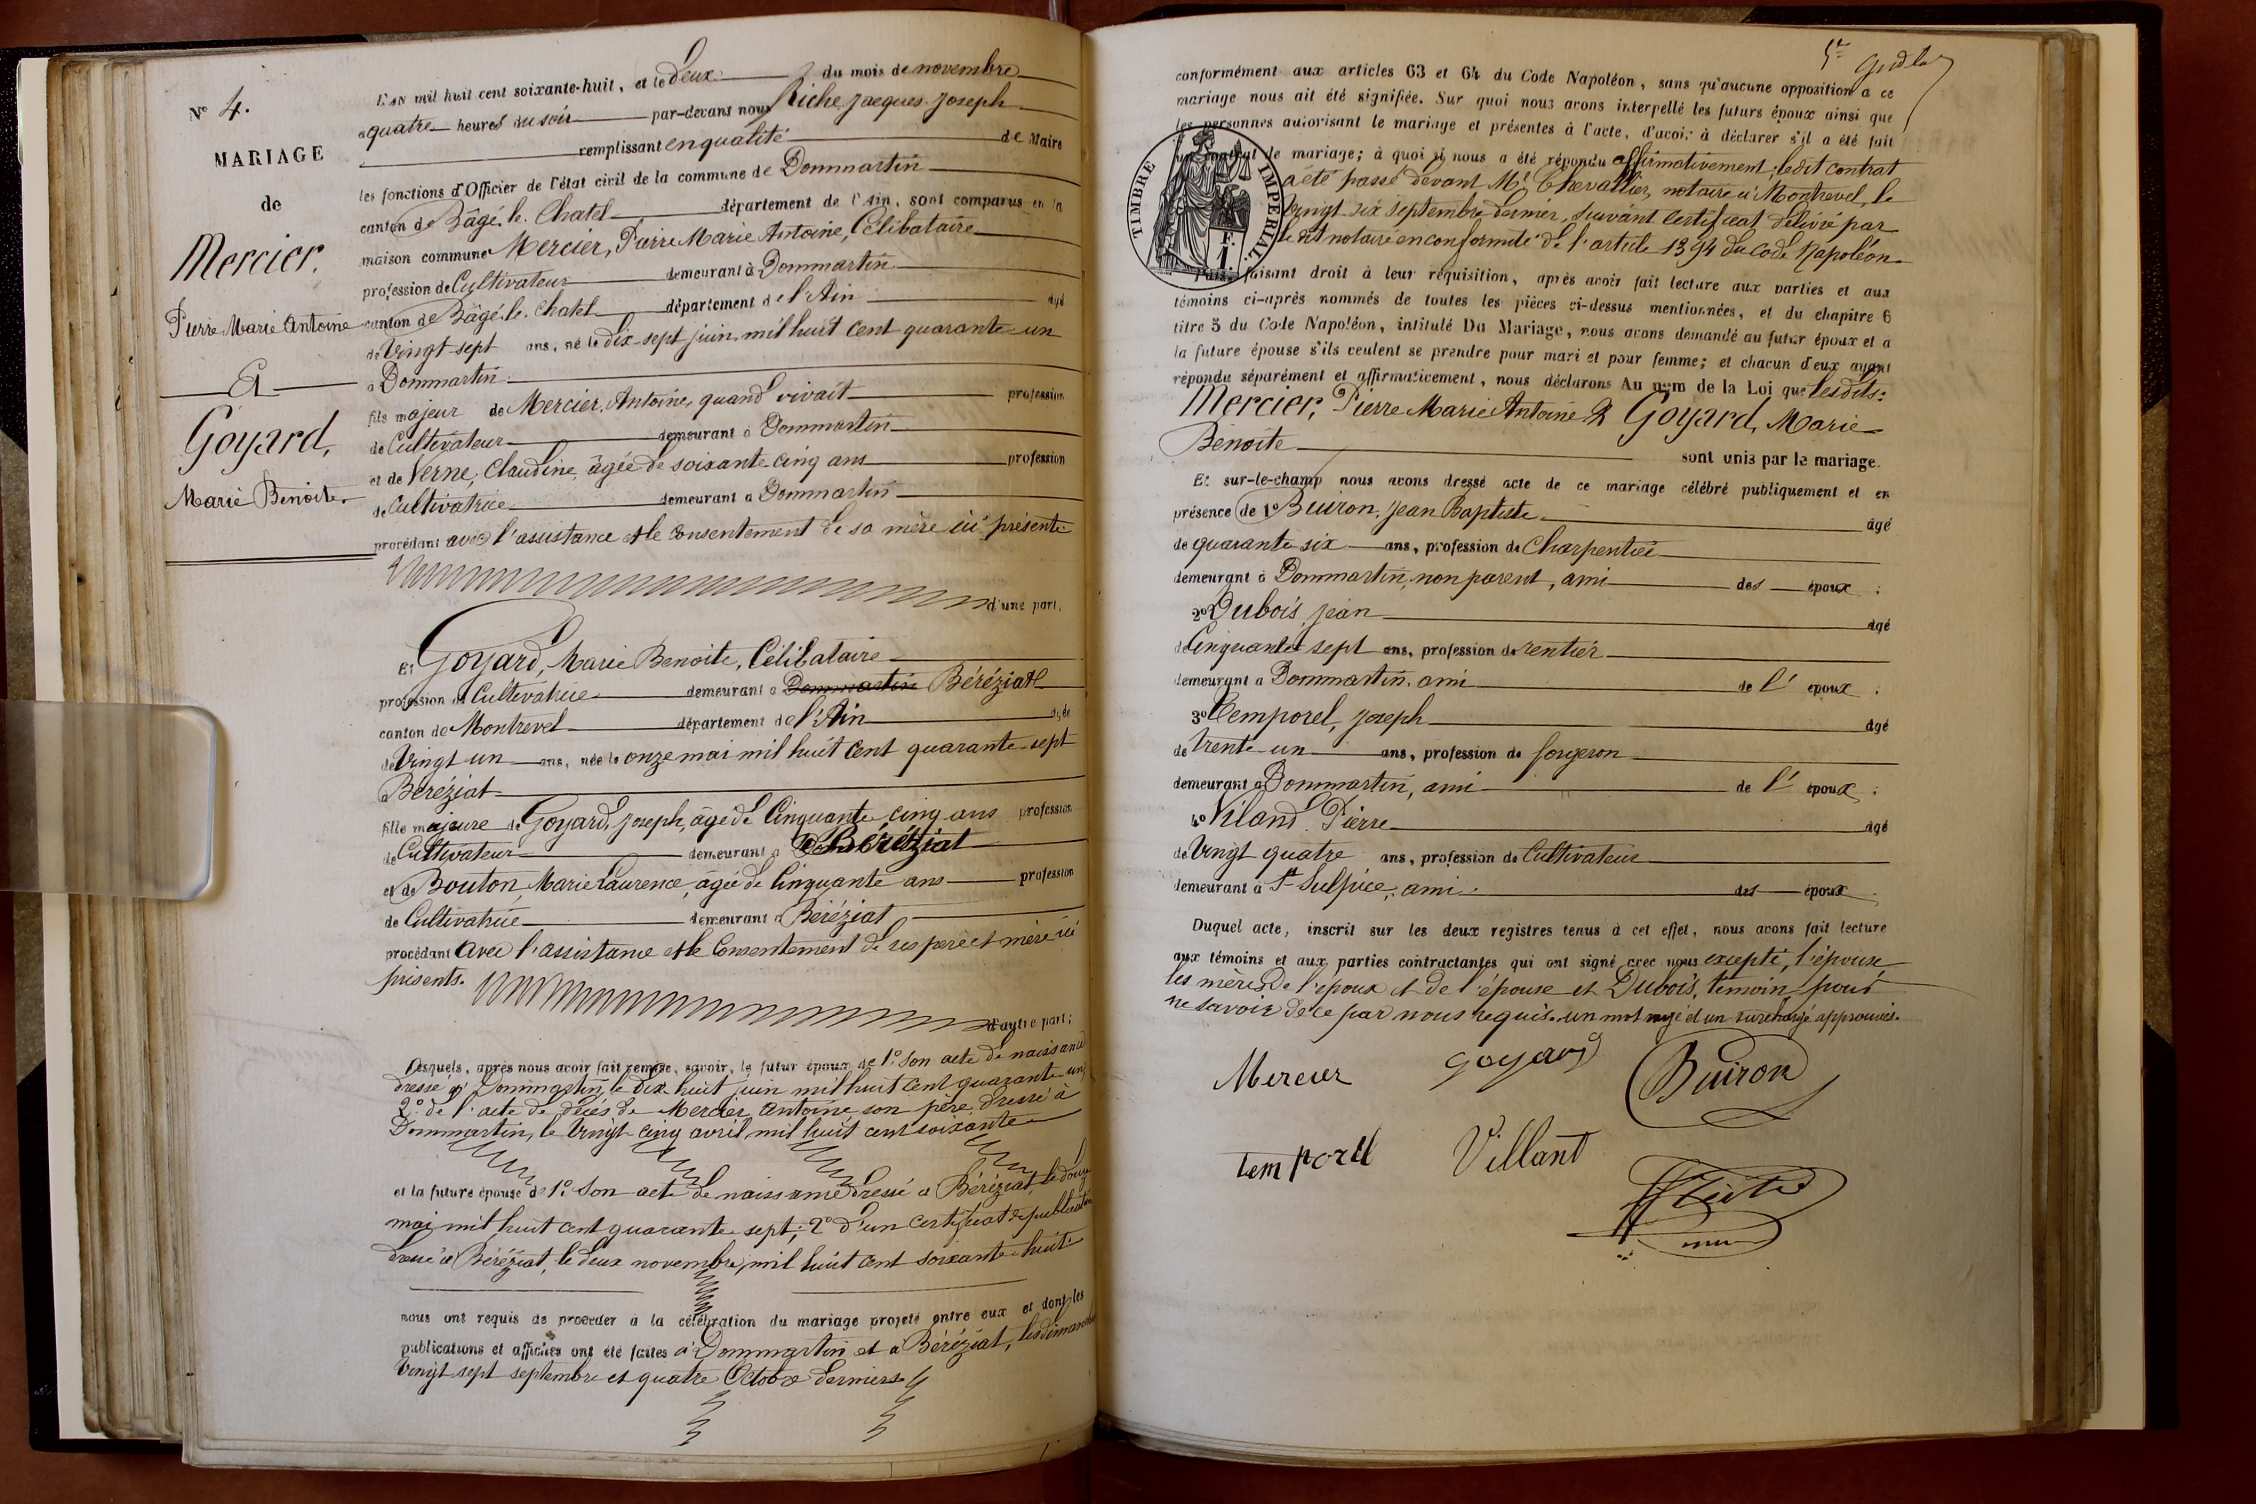 N° 4.
MARIAGE
de
Mercier.
Pierre Marie Antoine
Et
Goyard,
Marie Benoite.
L'an mil huit cent soixante-huit, et le deux du mois de novembre
a quatre heures du soir par-devant nous Riche Jacques Joseph
remplissant en qualité de Maire
les fonctions d'Officier de l'état civil de la commune de Dommartin
canton de Bâgé-le-Chatel département de l'Ain, sont comparus en la
maison commune Mercier, Pierre Marie Antoine, Célibataire
profession de Cultivateur demeurant à Dommartin
canton de Bâgé-le-Chatel département de l'Ain âgé
de vingt-sept ans, né le dix-sept juin mil huit cent quarante-un
à Dommartin
fils majeur de Mercier, Antoine, quand vivait profession
de Cultivateur demeurant à Dommartin
et de Verne, Claudine, âgée de soixante cinq ans profession
de Cultivatrice demeurant à Dommartin
procédant avec l'assistance et le consentement de sa mère ici présente
d'une part,
Et Goyard, Marie Benoite, Célibataire
profession de Cultivatrice demeurant à Dommartin Béréziat
canton de Montrevel département de l'Ain âgée
de vingt un ans, née le onze mai mil huit cent quarante-sept
à Béréziat
fille majeure de Goyard, Joseph, âgé de Cinquante-cinq ans profession
de Cultivateur demeurant à Béréziat
et de Bouton, Marie Laurence, âgée de Cinquante ans profession
de Cultivatrice demeurant à Béréziat
procédant avec l'assistance et le Consentement de ses père et mère ici
présents.
d'autre part;
Lesquels, après nous avoir fait remise, savoir, le futur époux de 1° Son acte de naissance
dressé à Dommartin, le dix-huit juin mil huit cent quarante-un,
2° de l'acte de décès de Mercier Antoine son père, dressé à
Dommartin, le vingt-cinq avril mil huit cent soixante
et la future épouse de 1° Son acte de naissance dressé à Béréziat, le douze
mai mil huit cent quarante sept; 2° d'un certificat de publication
dressé à Béréziat, le deux novembre, mil huit cent soixante-huit
nous ont requis de procéder à la célébration du mariage projeté entre eux et dont les
publications et affiches ont été faites à Dommartin et à Béréziat, les dimanches
vingt-sept septembre et quatre Octobre derniers
conformément aux articles 63 et 64 du Code Napoléon, sans qu'aucune opposition à ce
mariage nous ait été signifiée. Sur quoi nous avons interpellé les futurs époux ainsi que
les personnes autorisant le mariage et présentes à l'acte, d'avoir à déclarer s'il a été fait
un contrat de mariage; à quoi il nous a été répondu affirmativement; ledit contrat
a été passé devant Me Chevallier, notaire à Montrevel, le
vingt-six septembre dernier, suivant certificat délivré par
le dit notaire en conformité de l'article 1394 du code Napoléon.
TIMBRE IMPERIAL
F.
1.
Puis, faisant droit à leur réquisition, après avoir fait lecture aux parties et aux
témoins ci-après nommés de toutes les pièces ci-dessus mentionnées, et du chapitre 6
titre 5 du Code Napoléon, intitulé Du Mariage, nous avons demandé au futur époux et à
la future épouse s'ils veulent se prendre pour mari et pour femme; et chacun d'eux ayant
répondu séparément et affirmativement, nous déclarons Au nom de la Loi que lesdits:
Mercier, Pierre Marie Antoine & Goyard, Marie
Benoite
sont unis par le mariage.
Et sur-le-champ nous avons dressé acte de ce mariage célébré publiquement et en
présence de 1° Buiron, Jean Baptiste âgé
de quarante six ans, profession de Charpentier
demeurant à Dommartin, non parent, ami des époux;
2° Dubois, Jean âgé
de Cinquante sept ans, profession de rentier
demeurant à Dommartin. ami de l'époux;
3° Temporel, Joseph âgé
de trente-un ans, profession de forgeron
demeurant à Dommartin, ami de l'époux;
4° Viland, Pierre âgé
de vingt quatre ans, profession de Cultivateur
demeurant à St Sulpice, ami des époux.
Duquel acte, inscrit sur les deux registres tenus à cet effet, nous avons fait lecture
aux témoins et aux parties contractantes qui ont signé avec nous excepté, l'épouse
les mères de l'époux et de l'épouse et Dubois, témoin pour
ne savoir de ce par nous requis. un mot rayé et un surchargé approuvés.
Mercier Goyard Buiron
temporel Villant